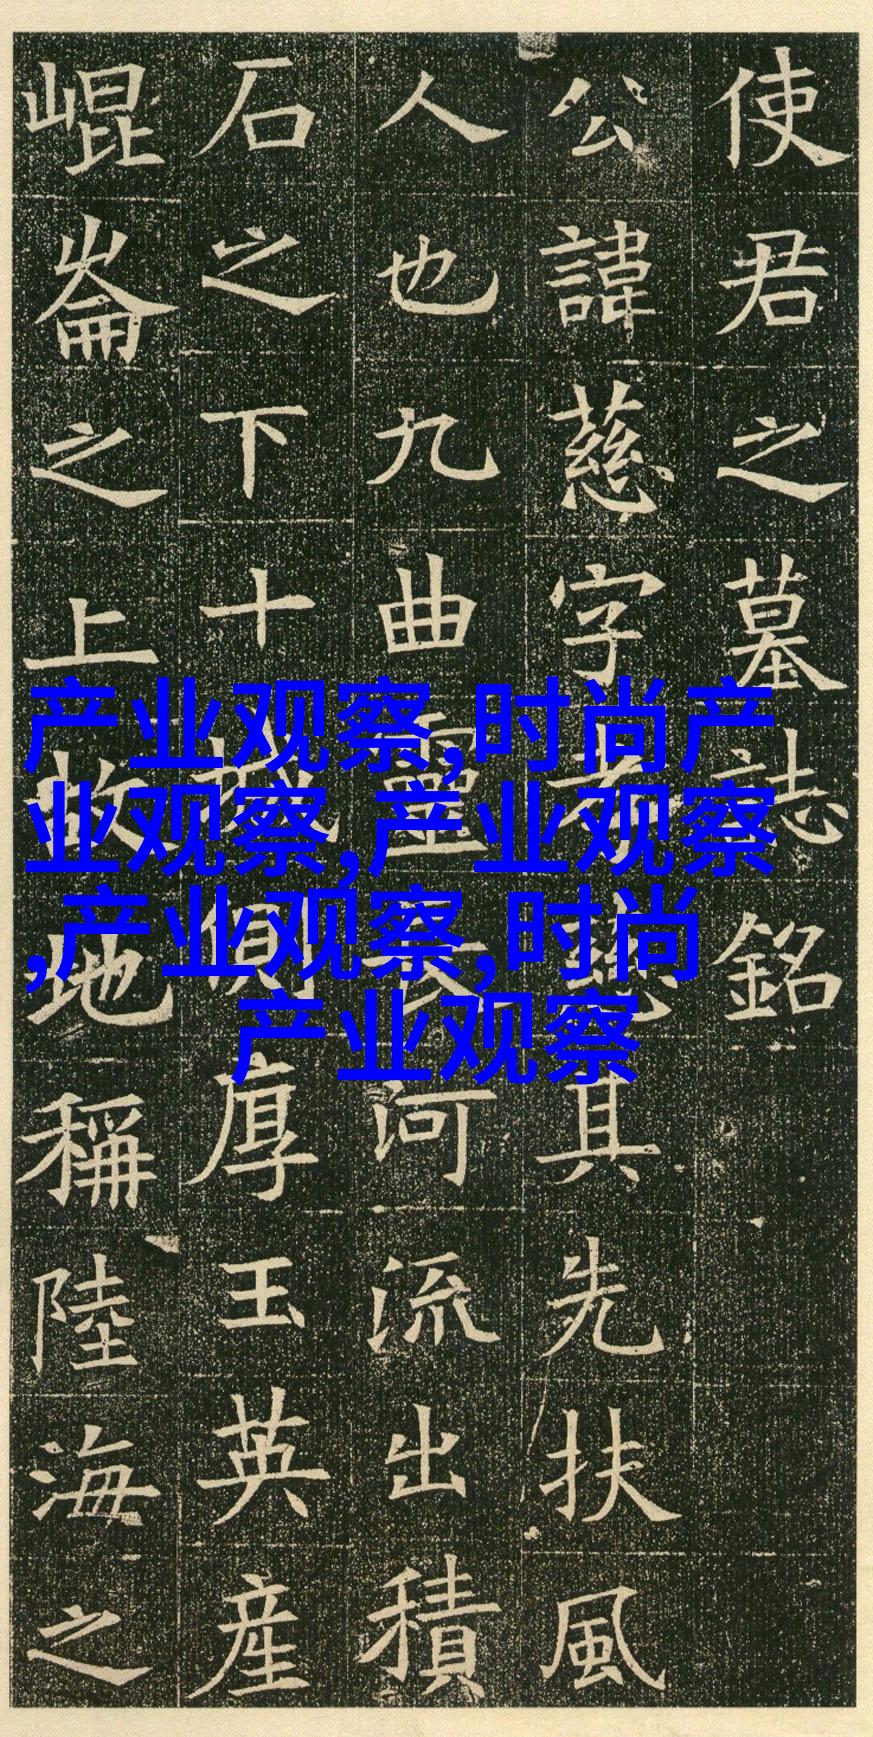 使君之墓誌銘
公諱慈字孝慈其先扶風
人也九曲靈長河流出積
石之下十城側厚玉英産
崐崘之上故地稱陸海之
产业观察,时尚产
业观察,产业观察
,产业观察,时尚
产业观察